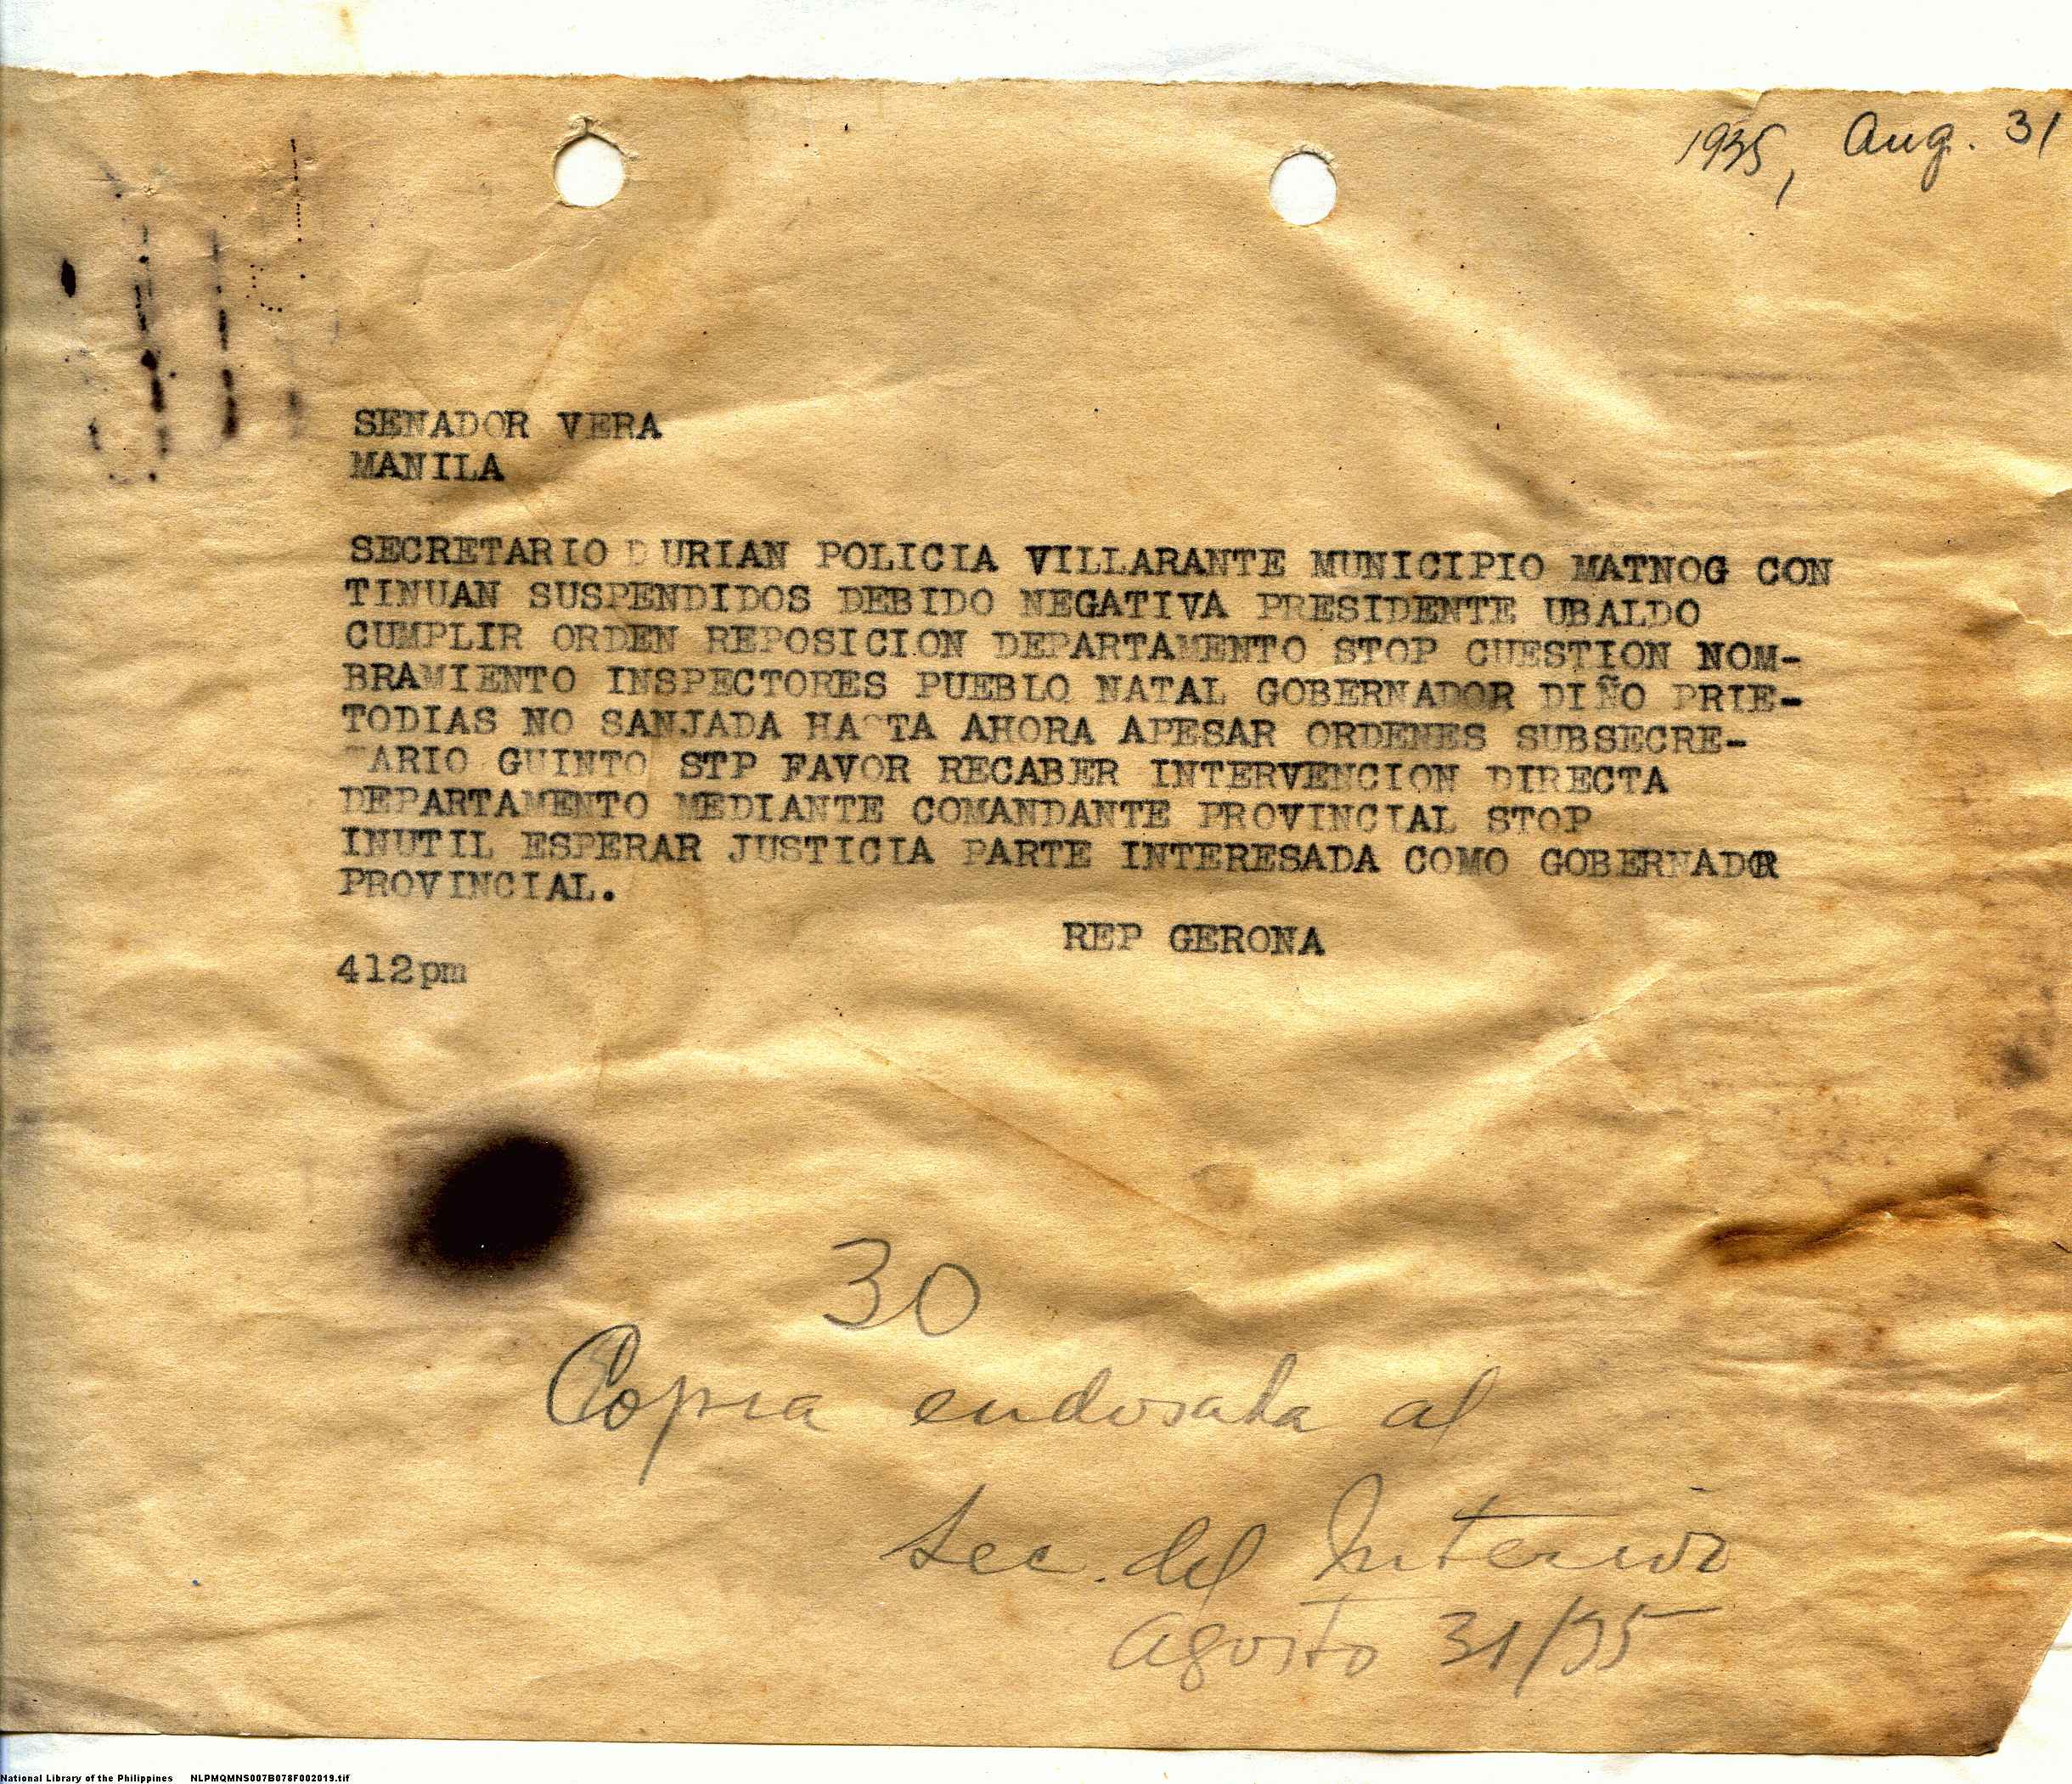 1935, Aug. 31
SENADOR VERA
MANILA
SECRETARIO DURIAN POLICIA VILLARANTE MUNICIPIO MATNOG CON
TINUAN SUSPENDIDOS DEBIDO NEGATIVA PRESIDENTE UBALDO
CUMPLIR ORDEN REPOSICION DEPARTAMENTO STOP CUESTION NOM-
BRAMIENTO INSPECTORES PUEBLO NATAL GOBERNADOR DIÑO PRIE-
TODIAS NO SANJADA HASTA AHORA APESAR ORDENES SUBSECRE-
TARIO GUINTO STP FAVOR RECABER INTERVENCION DIRECTA
DEPARTAMENTO MEDIANTE COMANDANTE PROVINCIAL STOP
INUTIL ESPERAR JUSTICIA PARTE INTERESADA COMO GOBERNADOR
PROVINCIAL.
REP GERONA
412pm
30
Copia endosada al
Sec. del Interior
Agosto 31/35
National Library of the Philippines NLPMQMNS007B078F002019.tif